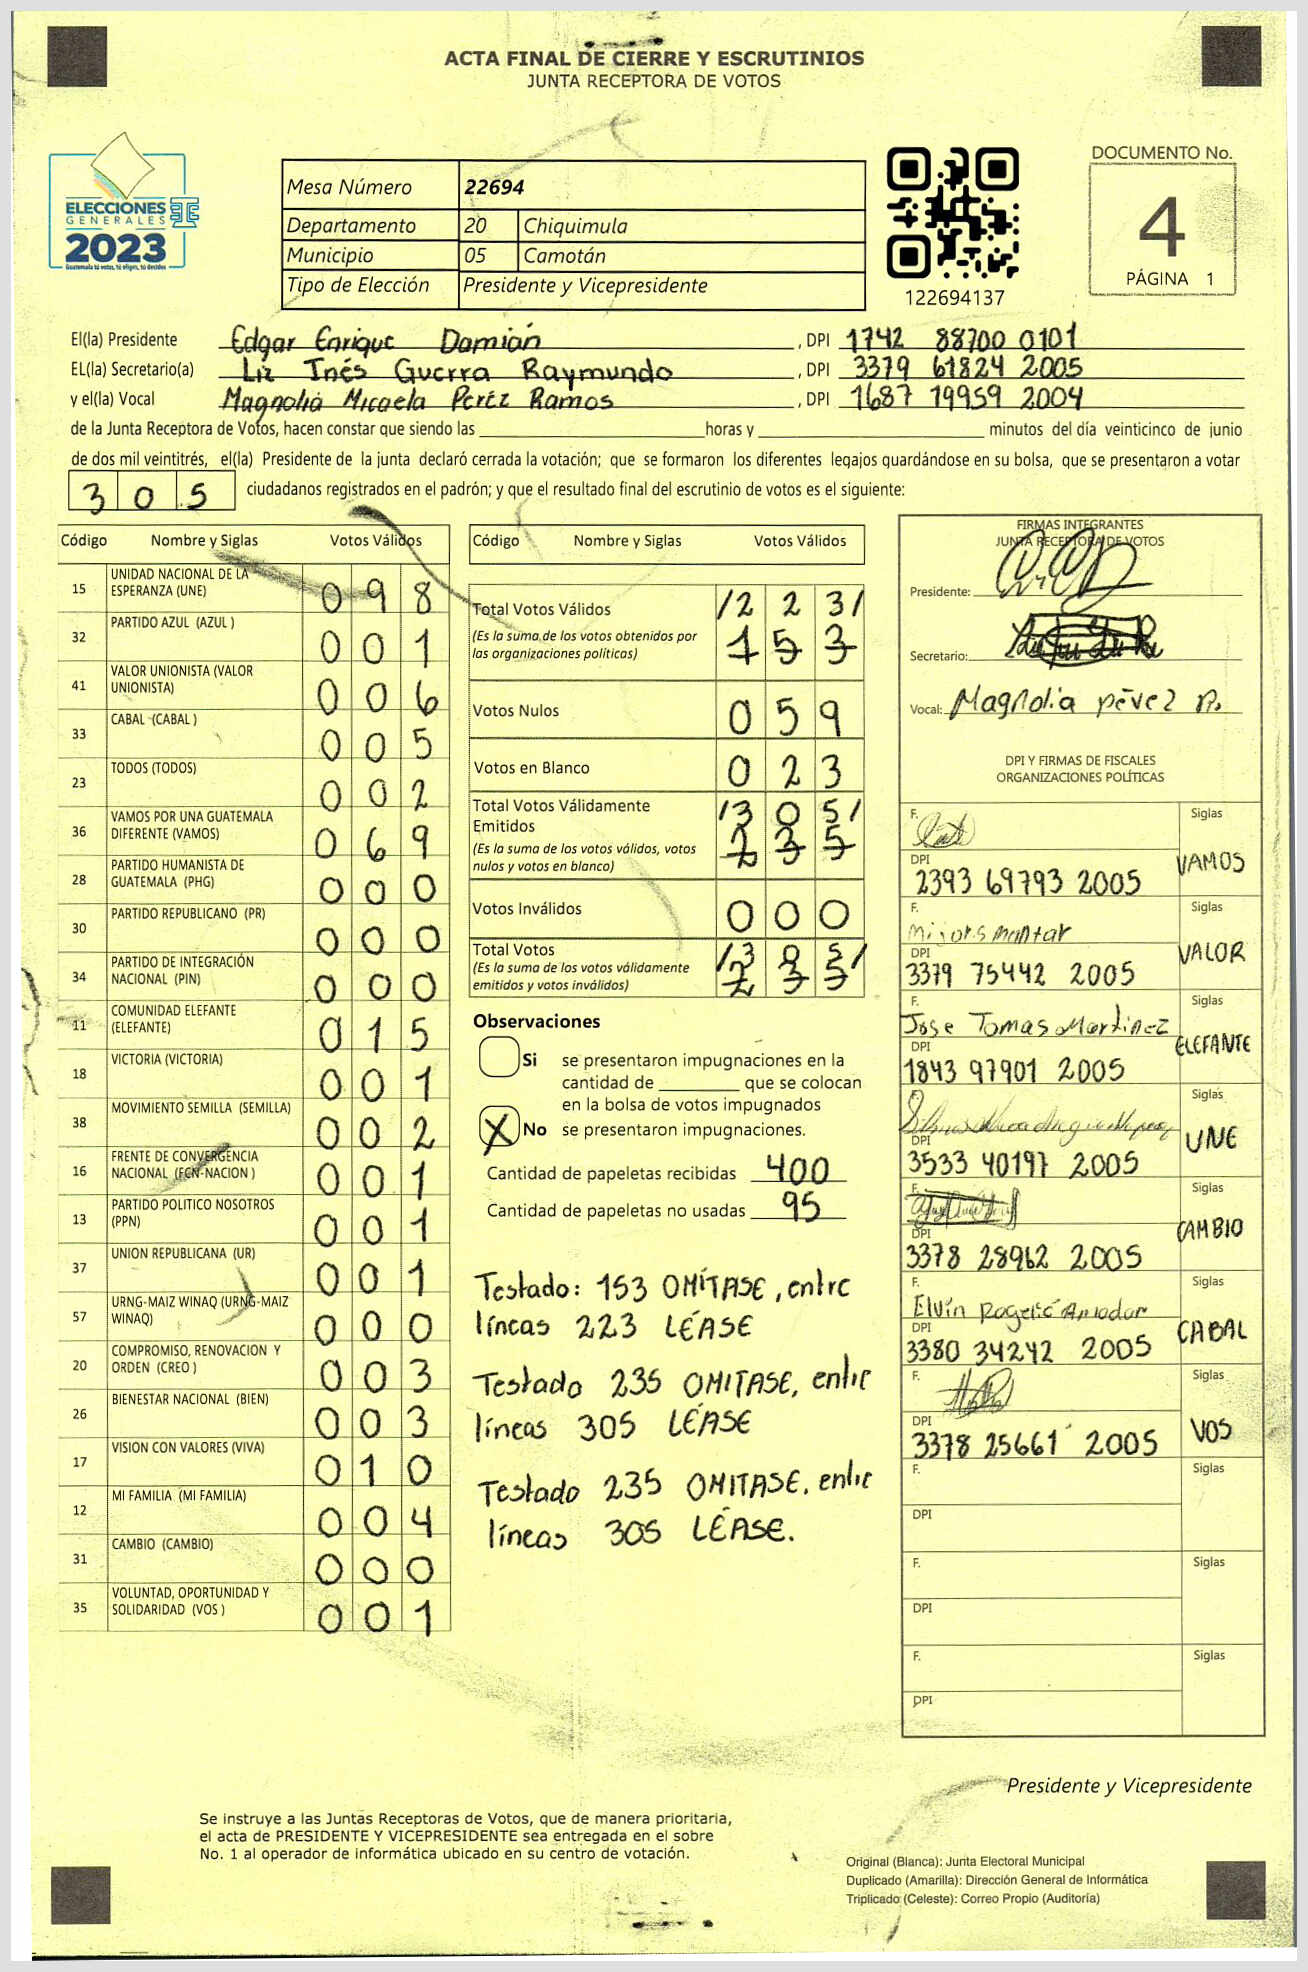 ACTA FINAL DE CIERRE Y ESCRUTINIOS
JUNTA RECEPTORA DE VOTOS
ELECCIONES
GENERALES
2023
Guatemala tú votas, tú eliges, tú decides
Mesa Número 22694
Departamento 20 Chiquimula
Municipio 05 Camotán
Tipo de Elección Presidente y Vicepresidente
122694137
DOCUMENTO No.
4
PÁGINA 1
El(la) Presidente Edgar Enrique Damián , DPI 1742 88700 0101
EL(la) Secretario(a) Liz Inés Guerra Raymundo , DPI 3379 61824 2005
y el(la) Vocal Magnolia Micaela Peréz Ramos , DPI 1687 79959 2004
de la Junta Receptora de Votos, hacen constar que siendo las horas y minutos del día veinticinco de junio
de dos mil veintitrés, el(la) Presidente de la junta declaró cerrada la votación; que se formaron los diferentes legajos guardándose en su bolsa, que se presentaron a votar
305 ciudadanos registrados en el padrón; y que el resultado final del escrutinio de votos es el siguiente:
Código Nombre y Siglas Votos Válidos
15 UNIDAD NACIONAL DE LA ESPERANZA (UNE) 098
32 PARTIDO AZUL (AZUL ) 001
41 VALOR UNIONISTA (VALOR UNIONISTA) 006
33 CABAL (CABAL ) 005
23 TODOS (TODOS) 002
36 VAMOS POR UNA GUATEMALA DIFERENTE (VAMOS) 069
28 PARTIDO HUMANISTA DE GUATEMALA (PHG) 000
30 PARTIDO REPUBLICANO (PR) 000
34 PARTIDO DE INTEGRACIÓN NACIONAL (PIN) 000
11 COMUNIDAD ELEFANTE (ELEFANTE) 015
18 VICTORIA (VICTORIA) 001
38 MOVIMIENTO SEMILLA (SEMILLA) 002
16 FRENTE DE CONVERGENCIA NACIONAL (FCN-NACION ) 001
13 PARTIDO POLITICO NOSOTROS (PPN) 001
37 UNION REPUBLICANA (UR) 001
57 URNG-MAIZ WINAQ (URNG-MAIZ WINAQ) 000
20 COMPROMISO, RENOVACION Y ORDEN (CREO ) 003
26 BIENESTAR NACIONAL (BIEN) 003
17 VISION CON VALORES (VIVA) 010
12 MI FAMILIA (MI FAMILIA) 004
31 CAMBIO (CAMBIO) 000
35 VOLUNTAD, OPORTUNIDAD Y SOLIDARIDAD (VOS ) 001
Código Nombre y Siglas Votos Válidos
Total Votos Válidos /223/
(Es la suma de los votos obtenidos por las organizaciones políticas) 153
Votos Nulos 059
Votos en Blanco 023
Total Votos Válidamente Emitidos /305/
(Es la suma de los votos válidos, votos nulos y votos en blanco) 235
Votos Inválidos 000
Total Votos /305/
(Es la suma de los votos válidamente emitidos y votos inválidos) 235
Observaciones
Si se presentaron impugnaciones en la
cantidad de que se colocan
en la bolsa de votos impugnados
X No se presentaron impugnaciones.
Cantidad de papeletas recibidas 400
Cantidad de papeletas no usadas 95
Testado: 153 OMÍTASE, entre
líneas 223 LÉASE
Testado 235 OMITASE, entre
líneas 305 LÉASE
Testado 235 OMITASE, entre
líneas 305 LÉASE.
FIRMAS INTEGRANTES
JUNTA RECEPTORA DE VOTOS
Presidente:
Secretario:
Vocal: Magnolia pérez R.
DPI Y FIRMAS DE FISCALES
ORGANIZACIONES POLÍTICAS
F. Siglas
DPI 2393 69793 2005 VAMOS
F. Siglas
DPI 3379 75442 2005 VALOR
F. Jose Tomas Martinez Siglas
DPI 1843 97901 2005 ELEFANTE
F. Siglas
DPI 3533 40197 2005 UNE
F. Siglas
DPI 3378 28962 2005 CAMBIO
F. Elvín Rogelio Amador Siglas
DPI 3380 34242 2005 CABAL
F. Siglas
DPI 3378 25661 2005 VOS
F. Siglas
DPI
F. Siglas
DPI
F. Siglas
DPI
Presidente y Vicepresidente
Se instruye a las Juntas Receptoras de Votos, que de manera prioritaria,
el acta de PRESIDENTE Y VICEPRESIDENTE sea entregada en el sobre
No. 1 al operador de informática ubicado en su centro de votación.
Original (Blanca): Junta Electoral Municipal
Duplicado (Amarilla): Dirección General de Informática
Triplicado (Celeste): Correo Propio (Auditoría)